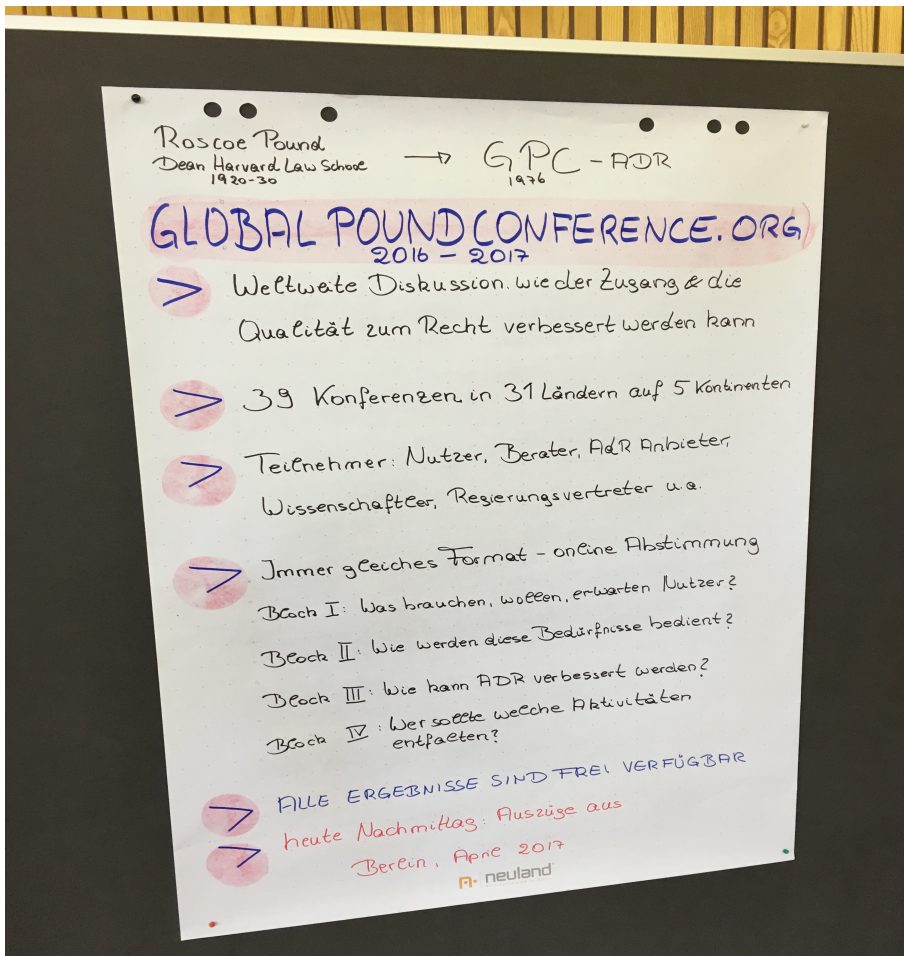 Roscoe Pound
Dean Harvard Law School
1920-30
→ GPC - ADR
1976
GLOBAL POUND CONFERENCE. ORG
2016 - 2017
> Weltweite Diskussion. wie der Zugang & die
Qualität zum Recht verbessert werden kann
> 39 Konferenzen in 31 Ländern auf 5 Kontinenten
> Teilnehmer: Nutzer, Berater, AdR Anbieter,
Wissenschaftler, Regierungsvertreter u.a.
> Immer gleiches Format - online Abstimmung
Block I: Was brauchen, wollen, erwarten Nutzer?
Block II: Wie werden diese Bedürfnisse bedient?
Block III: Wie kann ADR verbessert werden?
Block IV: Wer sollte welche Aktivitäten
entfalten?
> ALLE ERGEBNISSE SIND FREI VERFÜGBAR
> heute Nachmittag: Auszüge aus
Berlin, April 2017
neuland